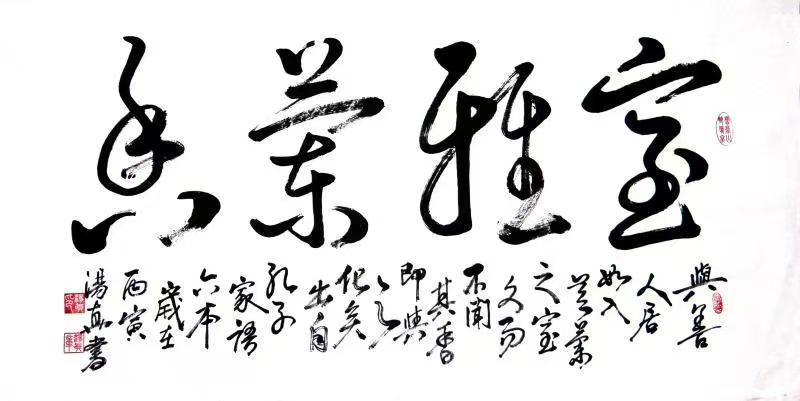 室雅蘭香
與善
人居
如入
芝蘭
之室
久而
不聞
其香
即與
之
化矣
出自
孔子
家語
六本
歲在
丙寅
湯 書